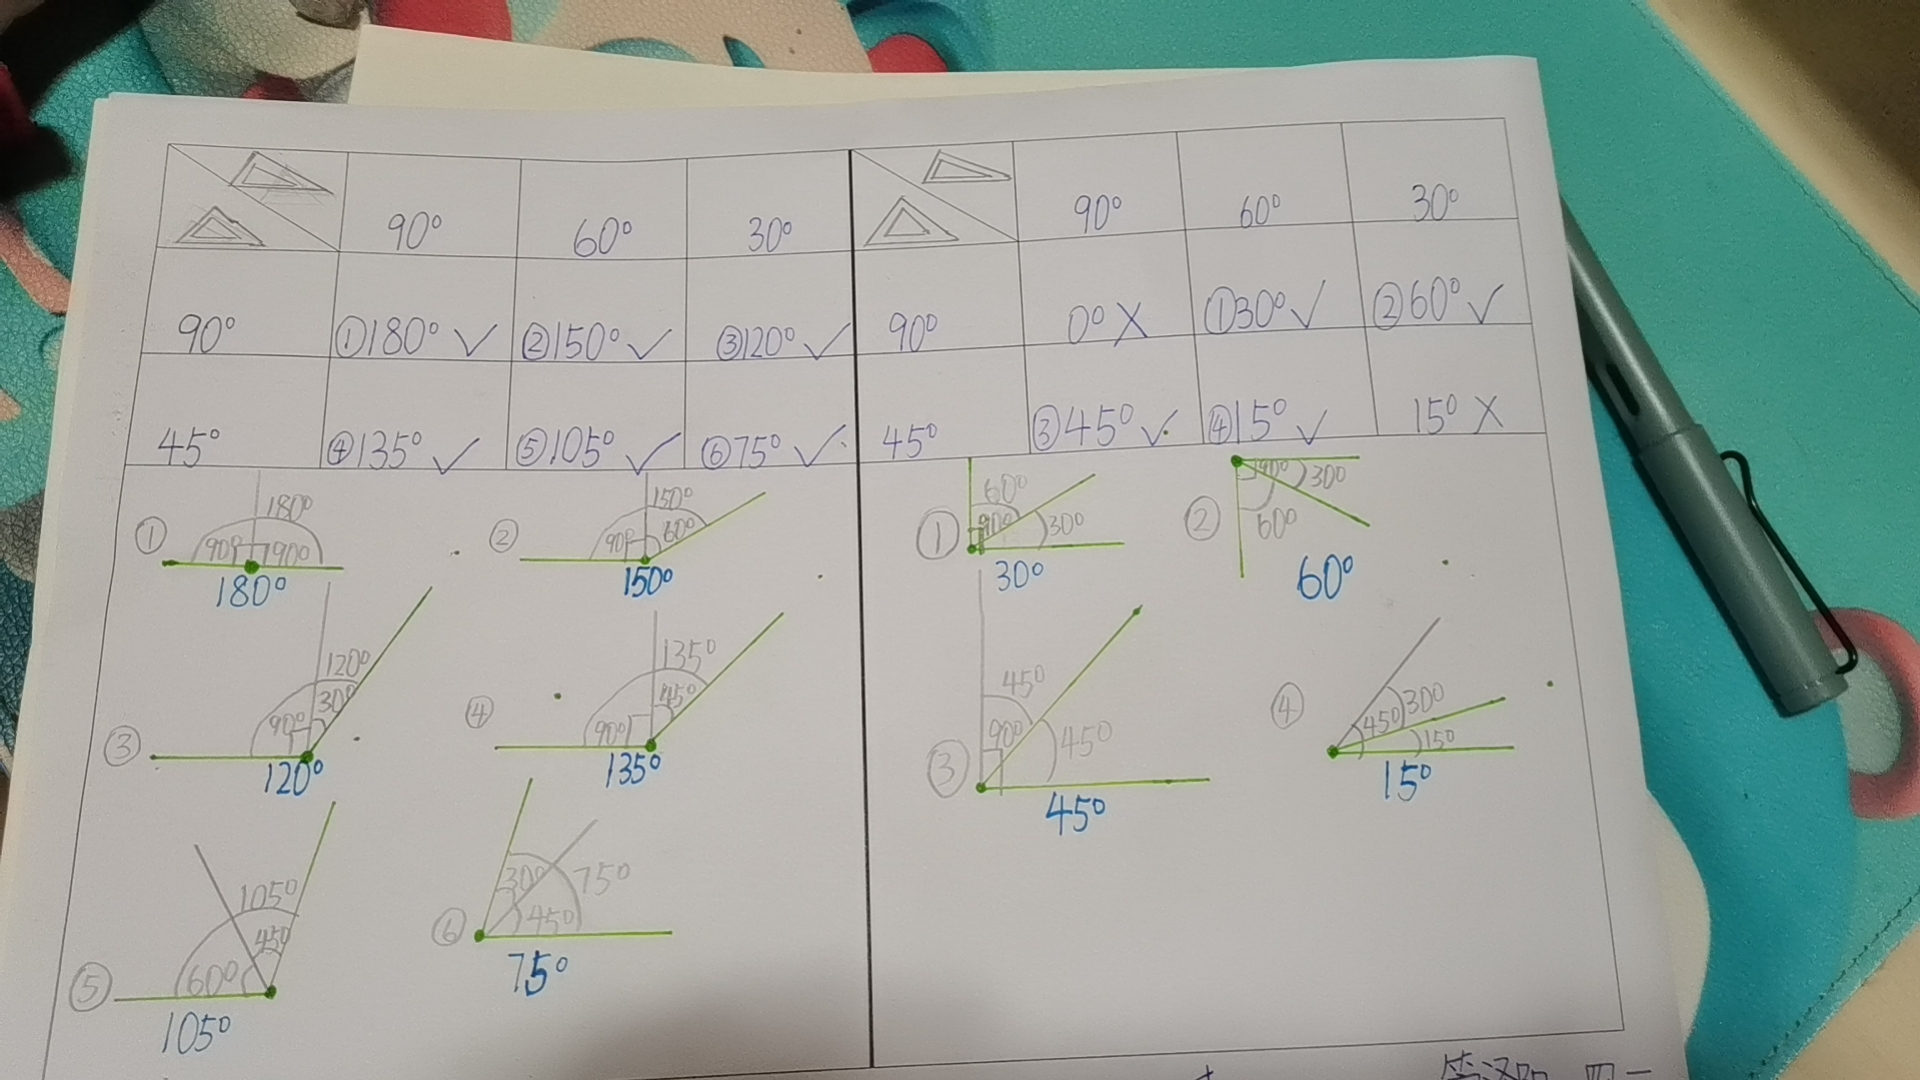 90° 60° 30° 90° 60° 30°
90° ①180° ✓ ②150° ✓ ③120° ✓ 90° 0° X ①30° ✓ ②60° ✓
45° ④135° ✓ ⑤105° ✓ ⑥75° ✓ 45° ③45° ✓ ④15° ✓ 15° X
① 180° 90° 90°
180°
② 150° 90° 60°
150°
③ 120° 30° 90°
120°
④ 135° 45° 90°
135°
⑤ 105° 45° 60°
105°
⑥ 30° 75° 45°
75°
① 60° 90° 30°
30°
② 90° 30° 60°
60°
③ 45° 90° 45°
45°
④ 30° 45° 15°
15°